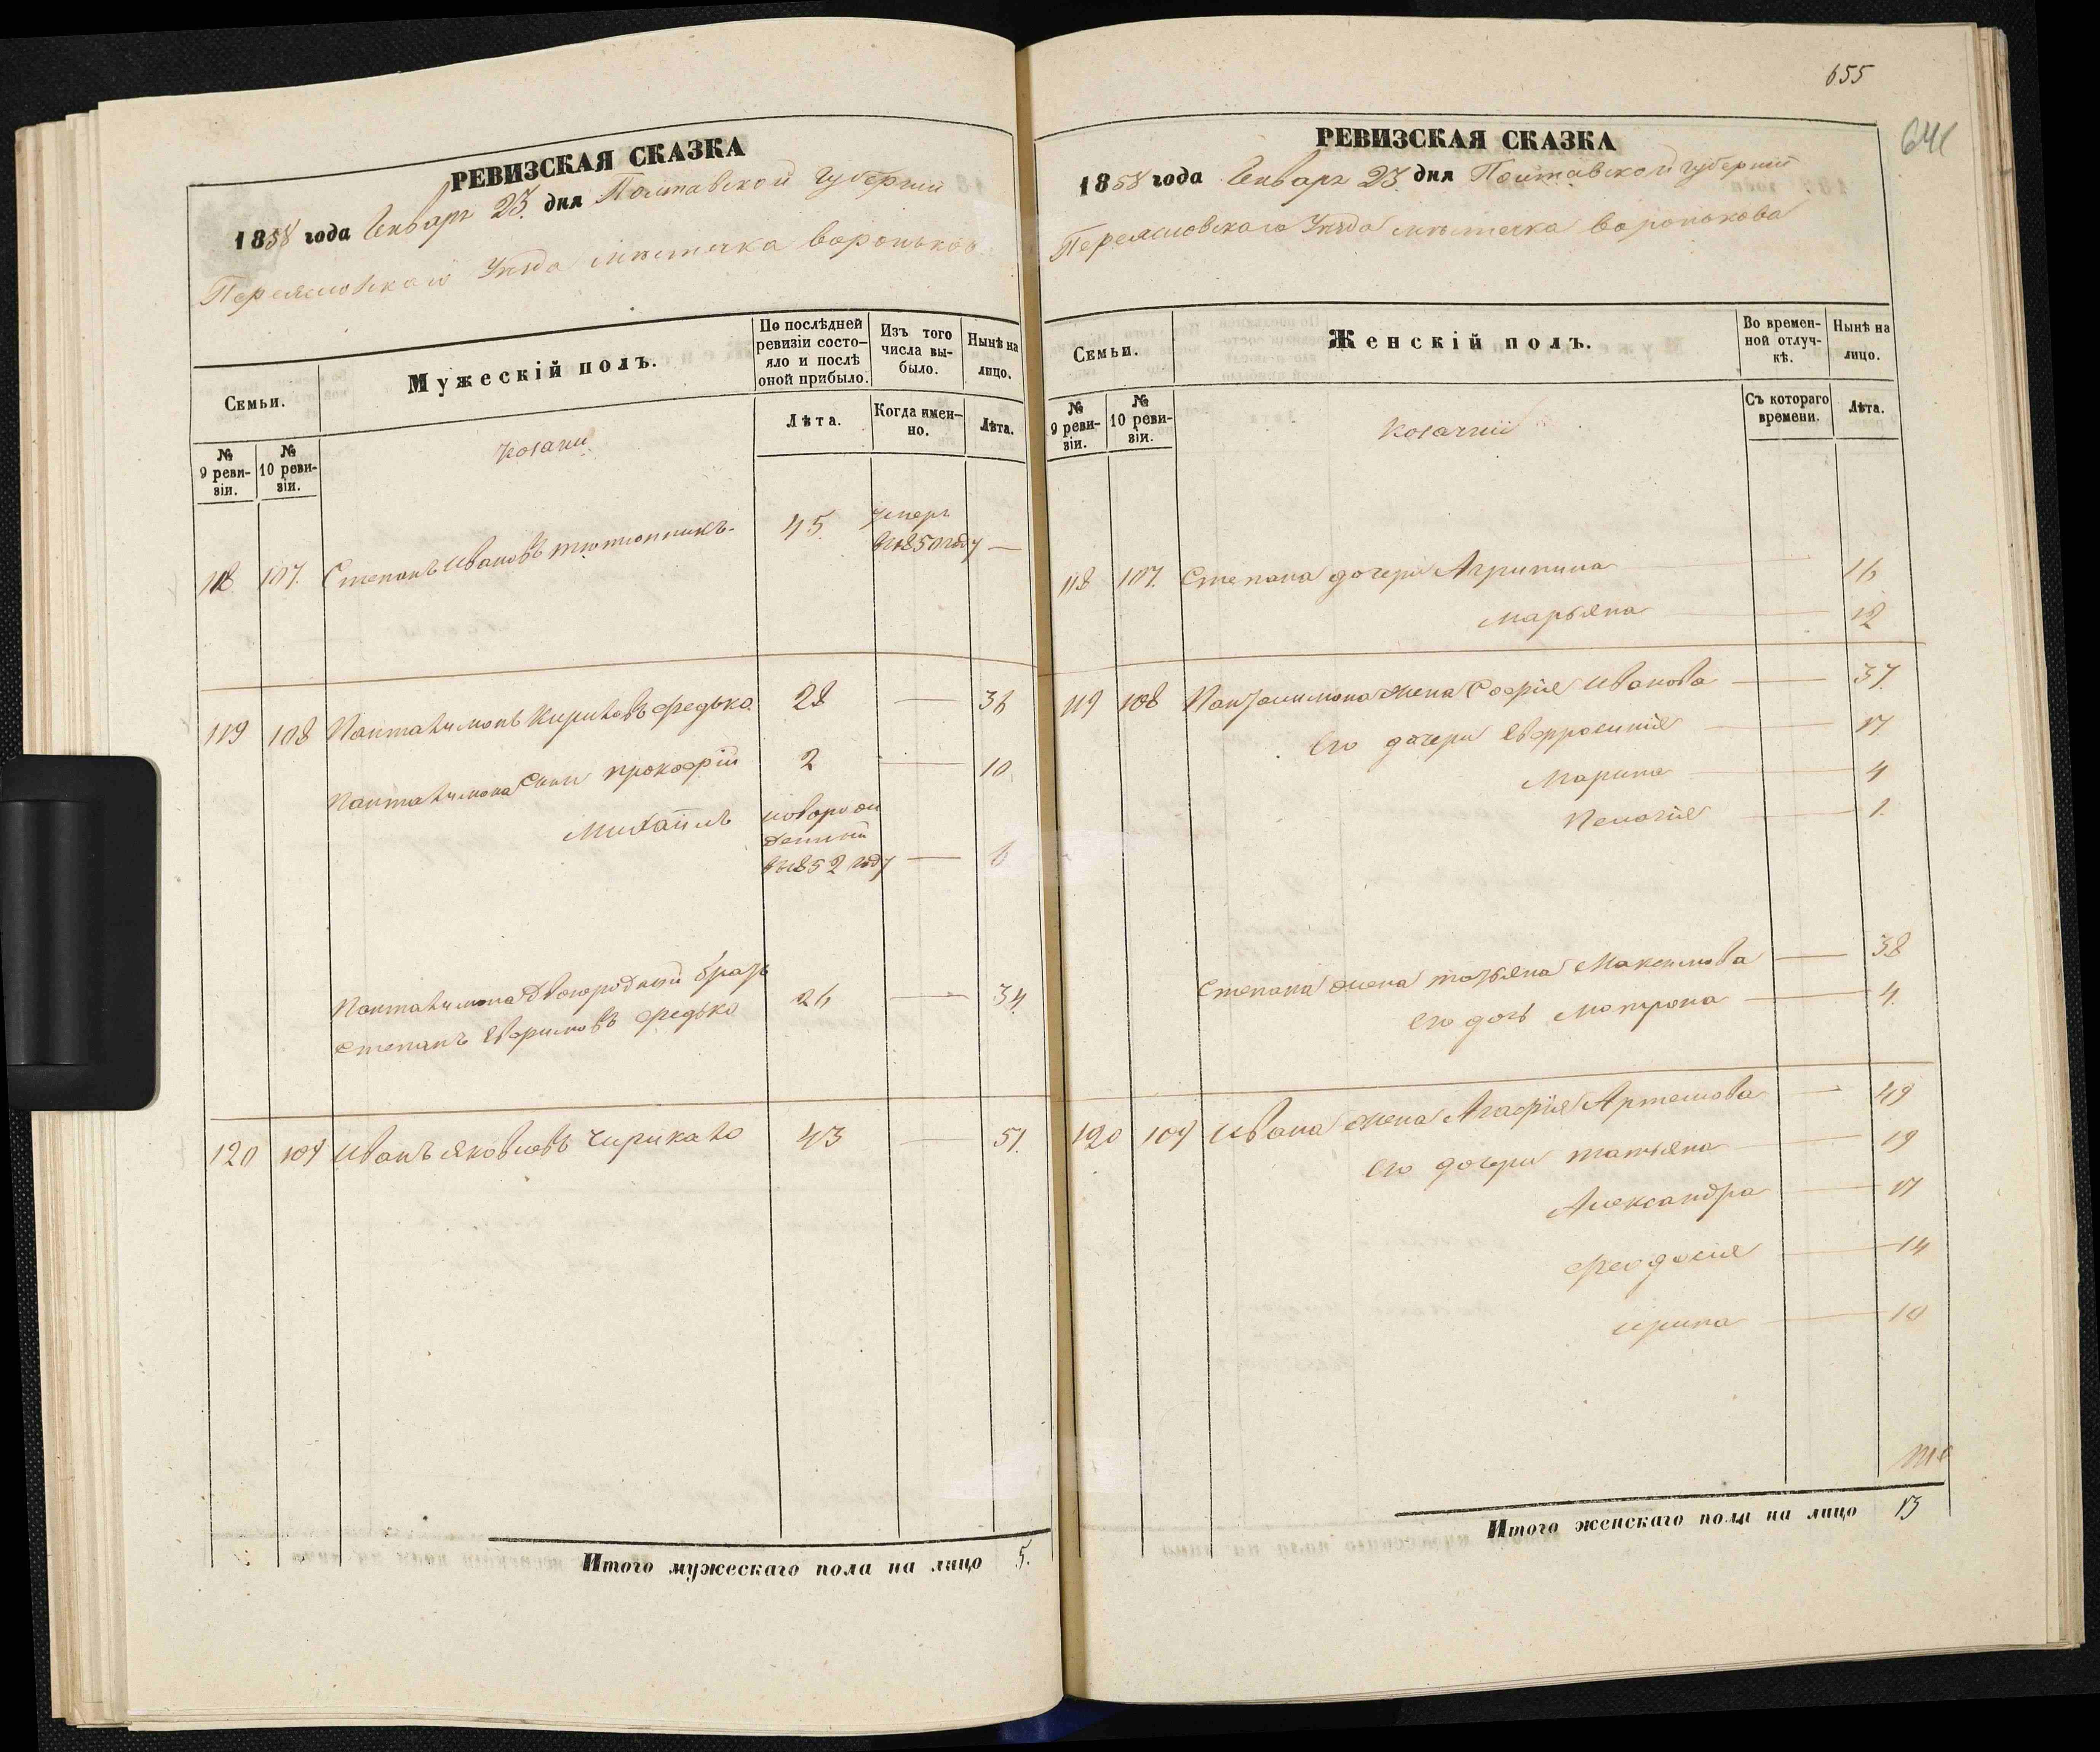 РЕВИЗСКАЯ СКАЗКА
1858 года Генваря 23. дня Полтавской Губернии
Переяславского Уезда местечка Воронькова
Семьи.
Мужескій полъ.
По послѣдней ревизіи состо-
яло и послѣ оной прибыло.
Изъ того числа вы-
было.
Нынѣ на лицо.
№ 9 реви-
зіи.
№ 10 реви-
зіи.
Козаки
Лѣта.
Когда имен-
но.
Лѣта.
118. 107. Степанъ Ивановъ Тютюнникъ. 45. умеръ
въ 1850 году —
119 108 Пантелимонъ Кириловъ Федько. 28 — 36
Пантелимона сыни Прокофій 2 — 10
Михаилъ новорож
денный
въ 1852 году — 6
Пантелимона двоюродный братъ
Степанъ Ефимовъ Федько 26 — 34.
120 109 Иванъ Яковлевъ 43 — 51.
Итого мужескаго пола на лицо 5.
655
641
РЕВИЗСКАЯ СКАЗКА
1858 года Генваря 23. дня Полтавской губернии
Переяславского Уезда местечка Воронькова
Семьи.
Женскій полъ.
Во времен-
ной отлуч-
кѣ.
Нынѣ на лицо.
№ 9 реви-
зіи.
№ 10 реви-
зіи.
Козачки
Съ котораго времени.
Лѣта.
118 107. Степана дочери Агрипина — 16
Марьяна — 12
119 108 Пантелимона жена Софія Иванова — 37.
Его дочери Евфросинія — 17
Марина — 4
Пелагія — 1.
Степана жена Татьяна Максимова — 38
Его дочь Мотрона — 4.
120 109 Ивана жена Агафія Артемова — 49
Его дочери Татьяна — 19
Александра — 17
Феодосія — 14
Ирина — 10
Итого женскаго пола на лицо 13